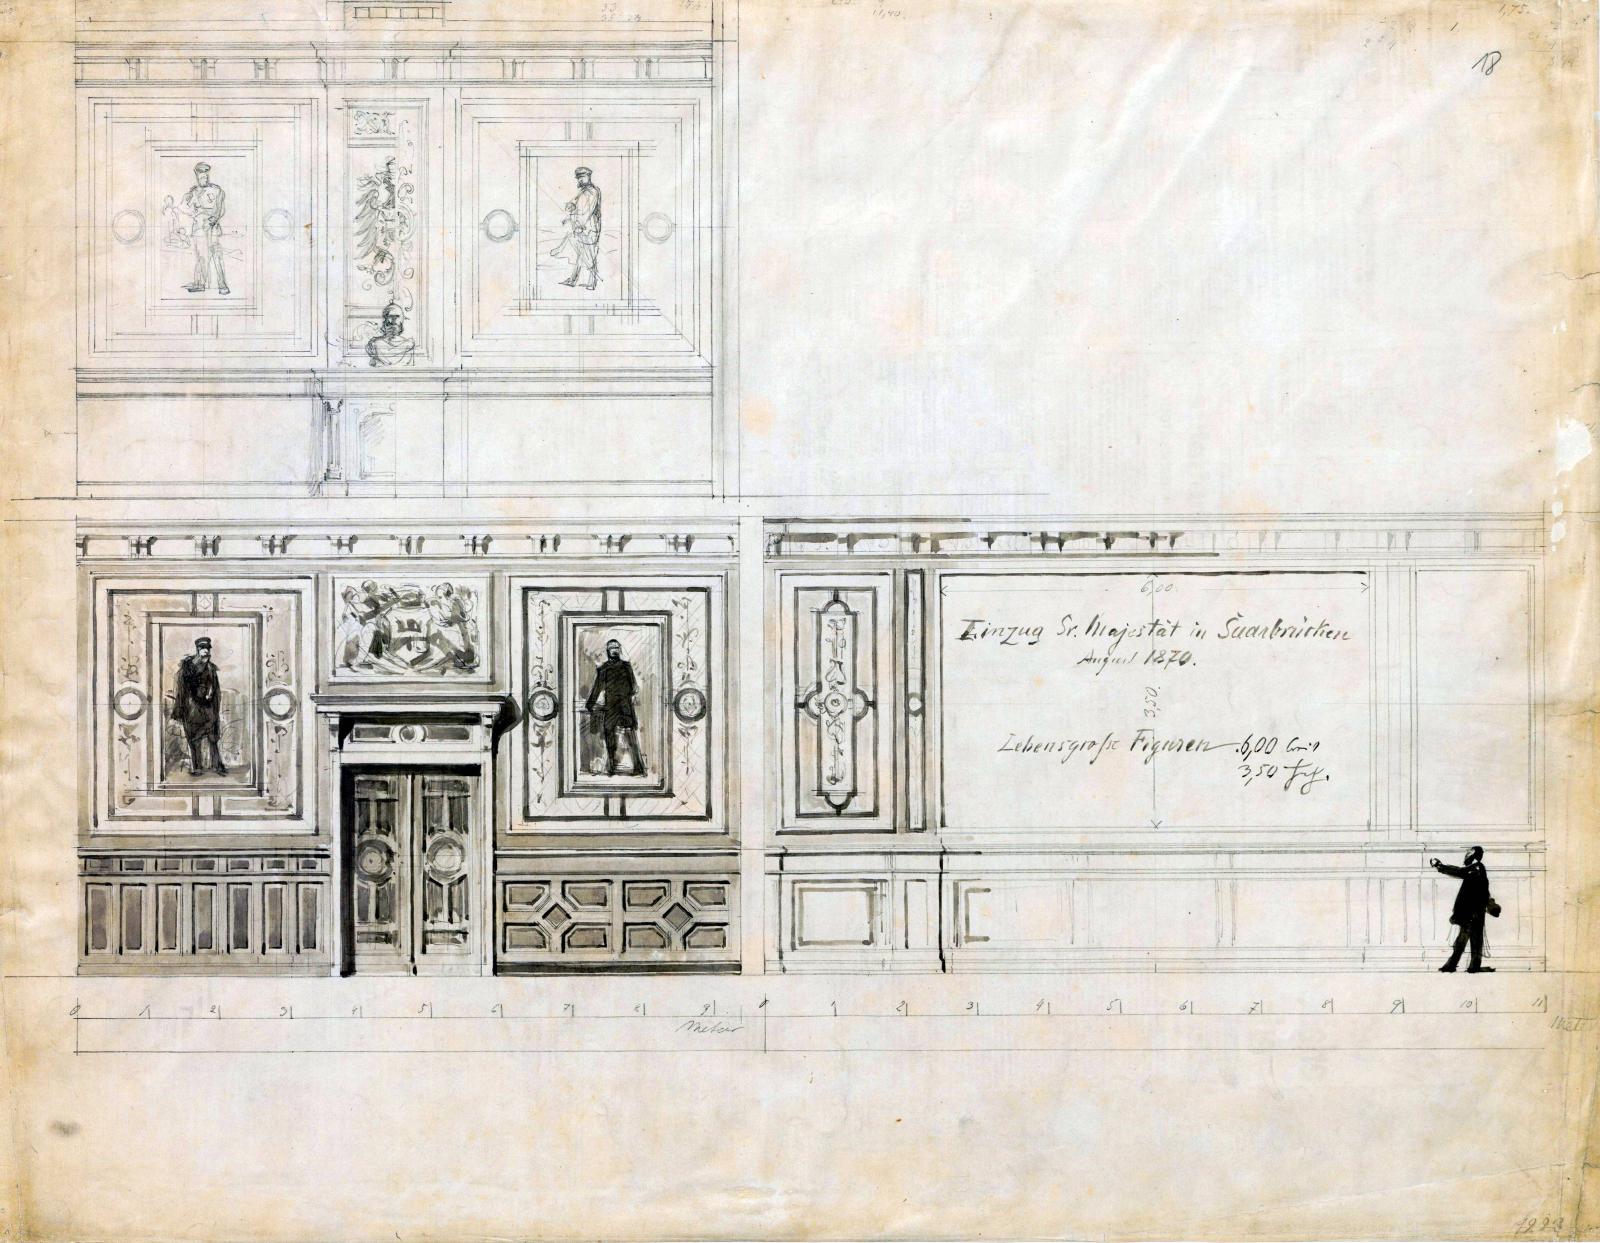 18
6,00
Einzug Sr. Majestät in Saarbrücken
August 1870.
3,50.
Lebensgroße Figuren 6,00
3,50
0 1 2 3 4 5 6 7 8 9
Meter
0 1 2 3 4 5 6 7 8 9 10 11
Meter